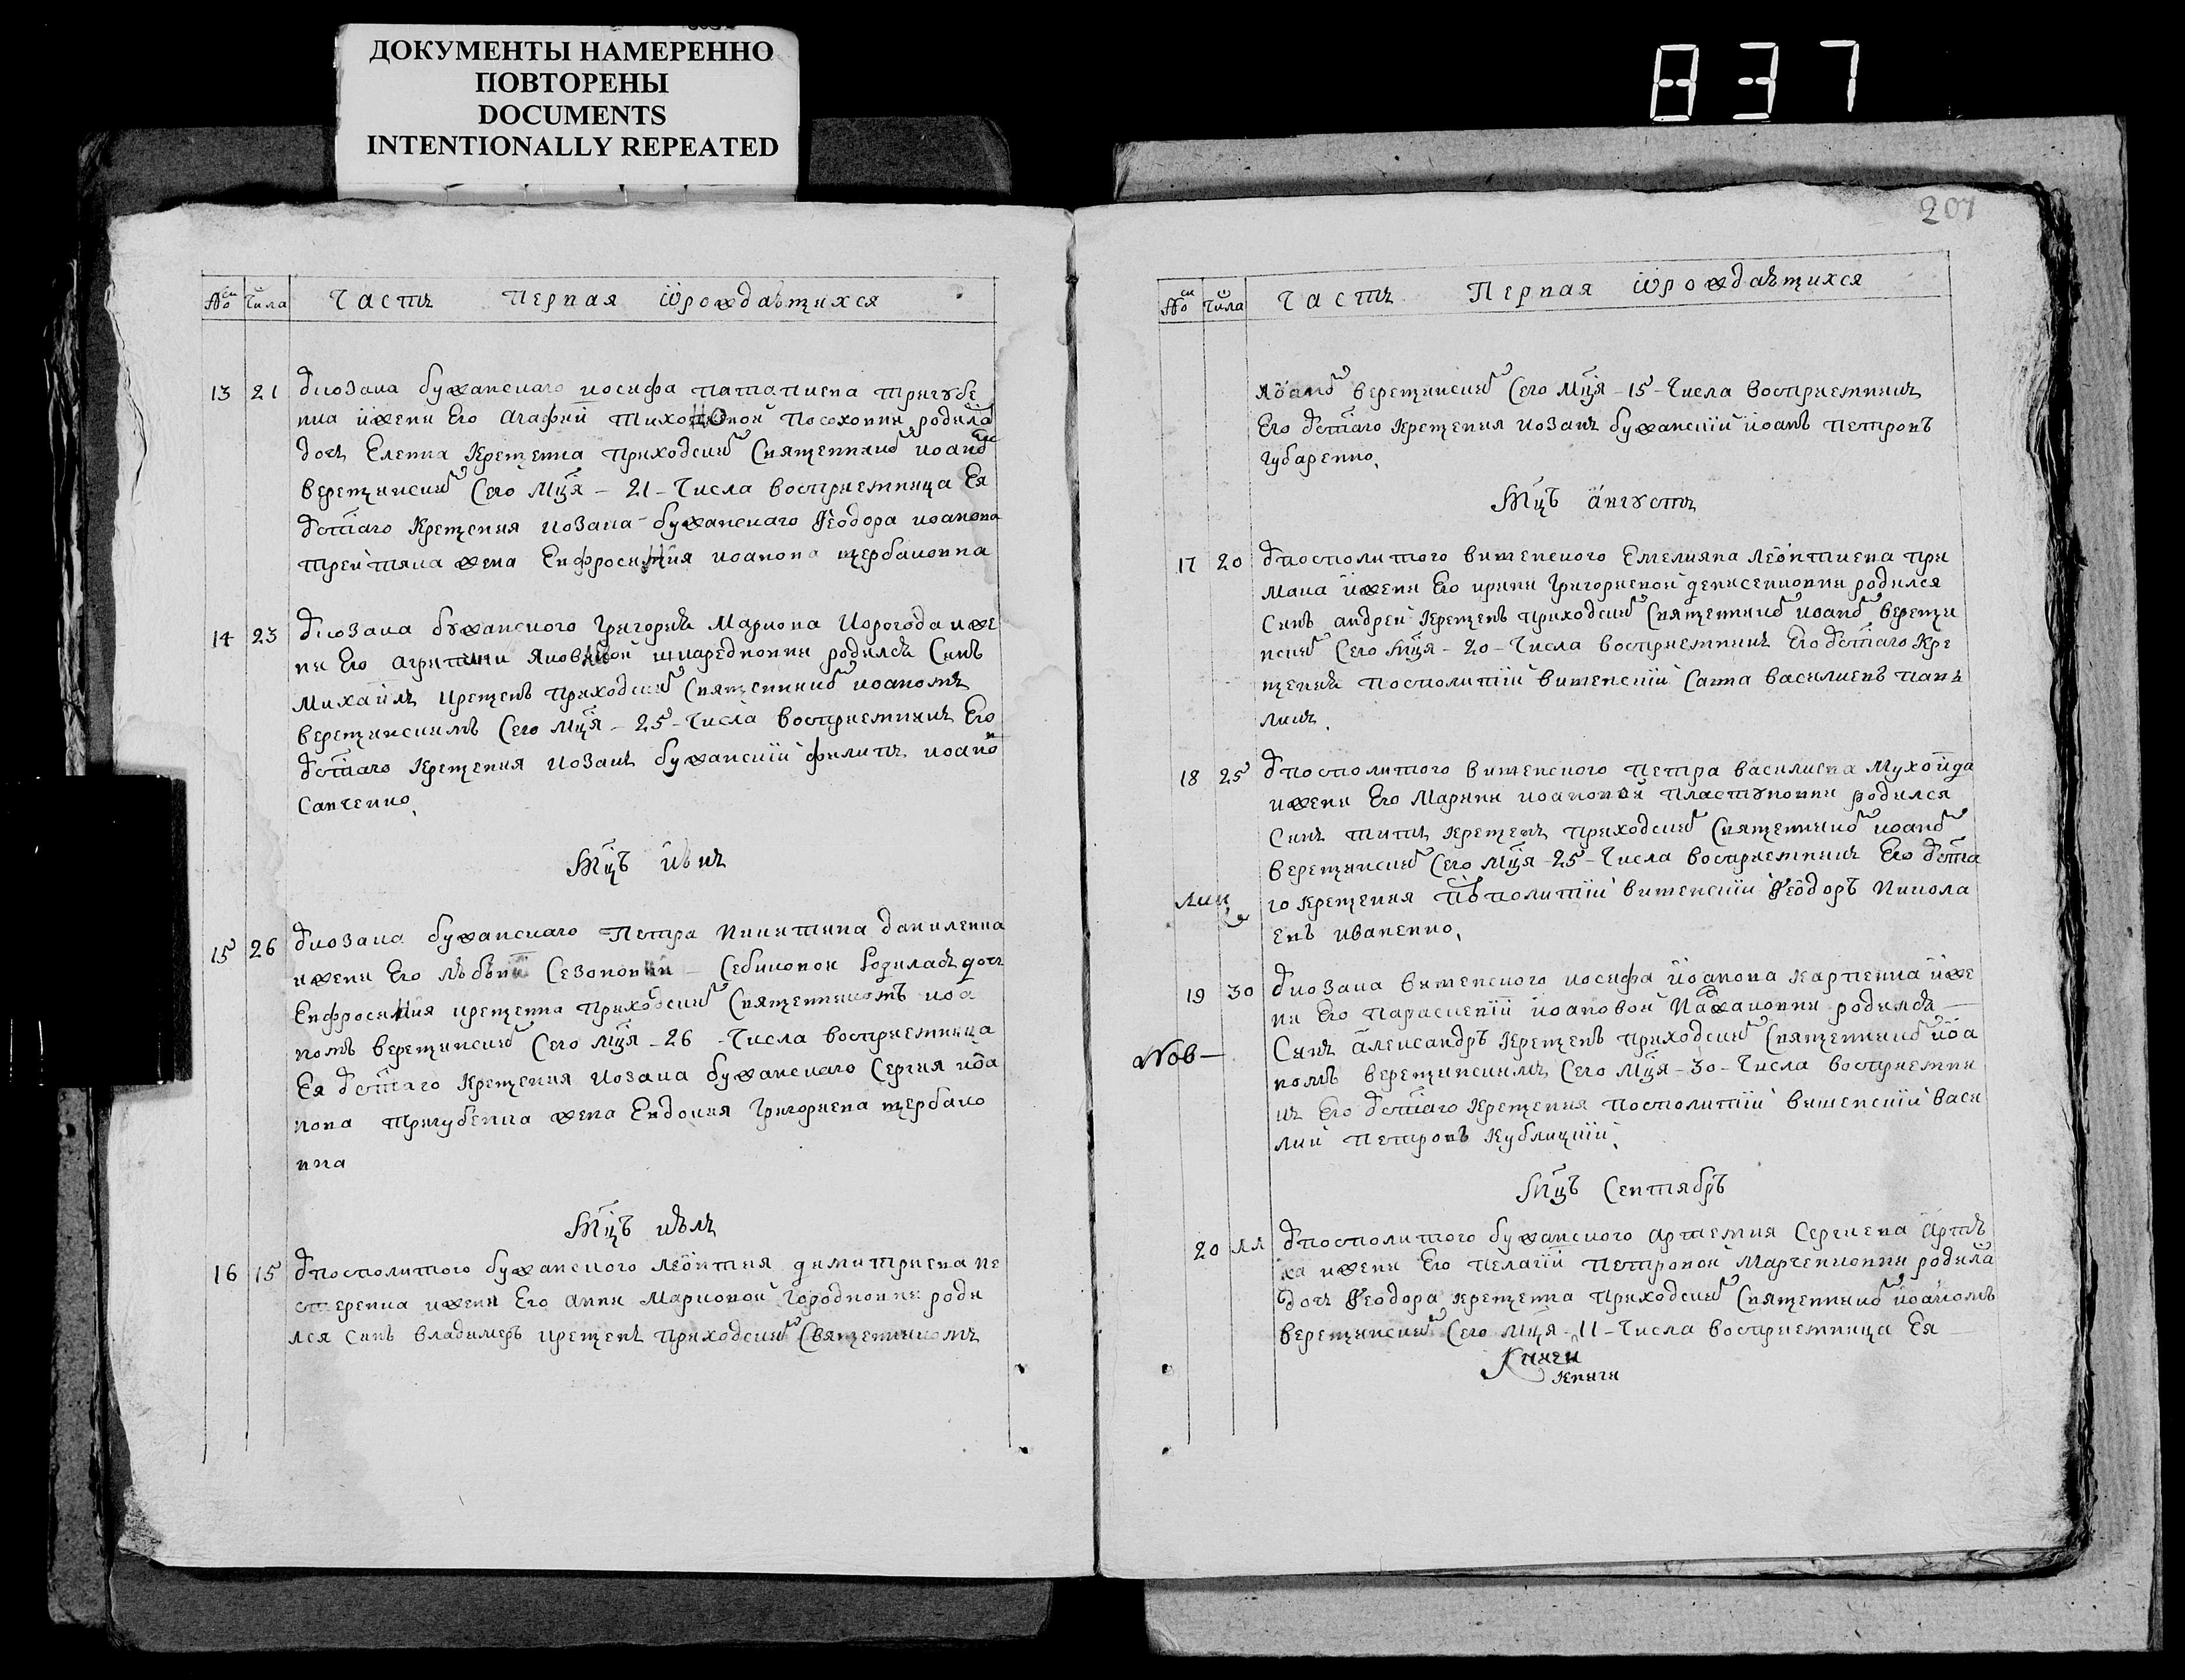 ДОКУМЕНТЫ НАМЕРЕННО
ПОВТОРЕНЫ
DOCUMENTS
INTENTIONALLY REPEATED
837
201
№ Числа Часть Первая ѿрождаѣщихся
13 21 ѿкозака бужанскаго иосифа патапиева тригубе
нка ижени Его Агафии Посоховни родила
дочь Еленна Крещенна приходски Священнико иоано
верещинский Сего Мця - 21 - Числа восприемница Ея
ѿстаго Крещения козака бужанскаго Феодора иоанова
третяка жена Ефросиния иоанова щербаковна
14 23 ѿкозака бужанского Григория Маркова Корогода иже
ни Его агрипини Яковной шкаредковни родился Синъ
Михаилъ крещенъ приходски Священнико иоаномъ
верещинскимъ Сего Мця - 25 - Числа восприемникъ Его
ѿстаго Крещения козакъ бужанский филипъ иоано
Савченко
Мцъ июнъ
15 26 ѿкозака бужанскаго Петра Никитина даниленка
ижени Его Родилась дочь
Ефросиния крещенна приходски Священникомъ иоа
номъ верещински Сего Мця - 26 - Числа восприемница
Ея ѿстаго Крещения козака бужанскаго Сергия иоа
нова Тригубенка жена Евдокия Григориева щербако
вна
Мцъ июль
16 15 ѿпосполитого бужанского леонтия димитриева не
стеренка ижени Его анни Марковой Городковни роди
лся Синъ владимеръ крещенъ приходски Священникомъ
№ Числа Часть Первая ѿрождаѣщихся
иоано верещински Сего Мця - 15 - Числа восприемникъ
Его ѿстаго Крещения козакъ бужанский иоанъ петровъ
губаренко
Мцъ август
17 20 ѿпосполитого вишенского Емелияна леонтиева при
мака ижени Его ирини Григориевой денисенковни родился
Синъ андрей Крещенъ приходски Священнико иоано верещи
нски Сего Мця - 20 - Числа восприемникъ Его ѿстаго Кре
щения посполитий вишенский Савва василиевъ пав
ликъ
18 25 ѿпосполитого вишенского Петра василиева Мухоида
ижени Его Марини иоановой пластуновни родился
Синъ титъ крещенъ приходски Священнико иоано
верещински Сего Мця - 25 - Числа восприемникъ Его ѿста
го Крещения посполитий вишенский Феодоръ Никола
евъ иваненко
19 30 ѿкозака вишенского иосифа иоанова Карпенка иже
ни Его Параскевии иоановой родился
Nов -
Синъ александръ Крещенъ приходски Священнико иоа
номъ верещинскимъ Сего Мця - 30 - Числа восприемни
къ Его ѿстаго Крещения посполитий вишенский Васи
лий Петровъ Кублицкий
Мцъ Сентябръ
20 ѿпосполитого бужанского артемия Сергиева артю
ха ижени Его Пелагии Петровой Марченковни родила
дочь Феодора крещенна приходски Священнико иоаномъ
верещински Сего Мця - 11 - Числа восприемница Ея
Книги
Книги